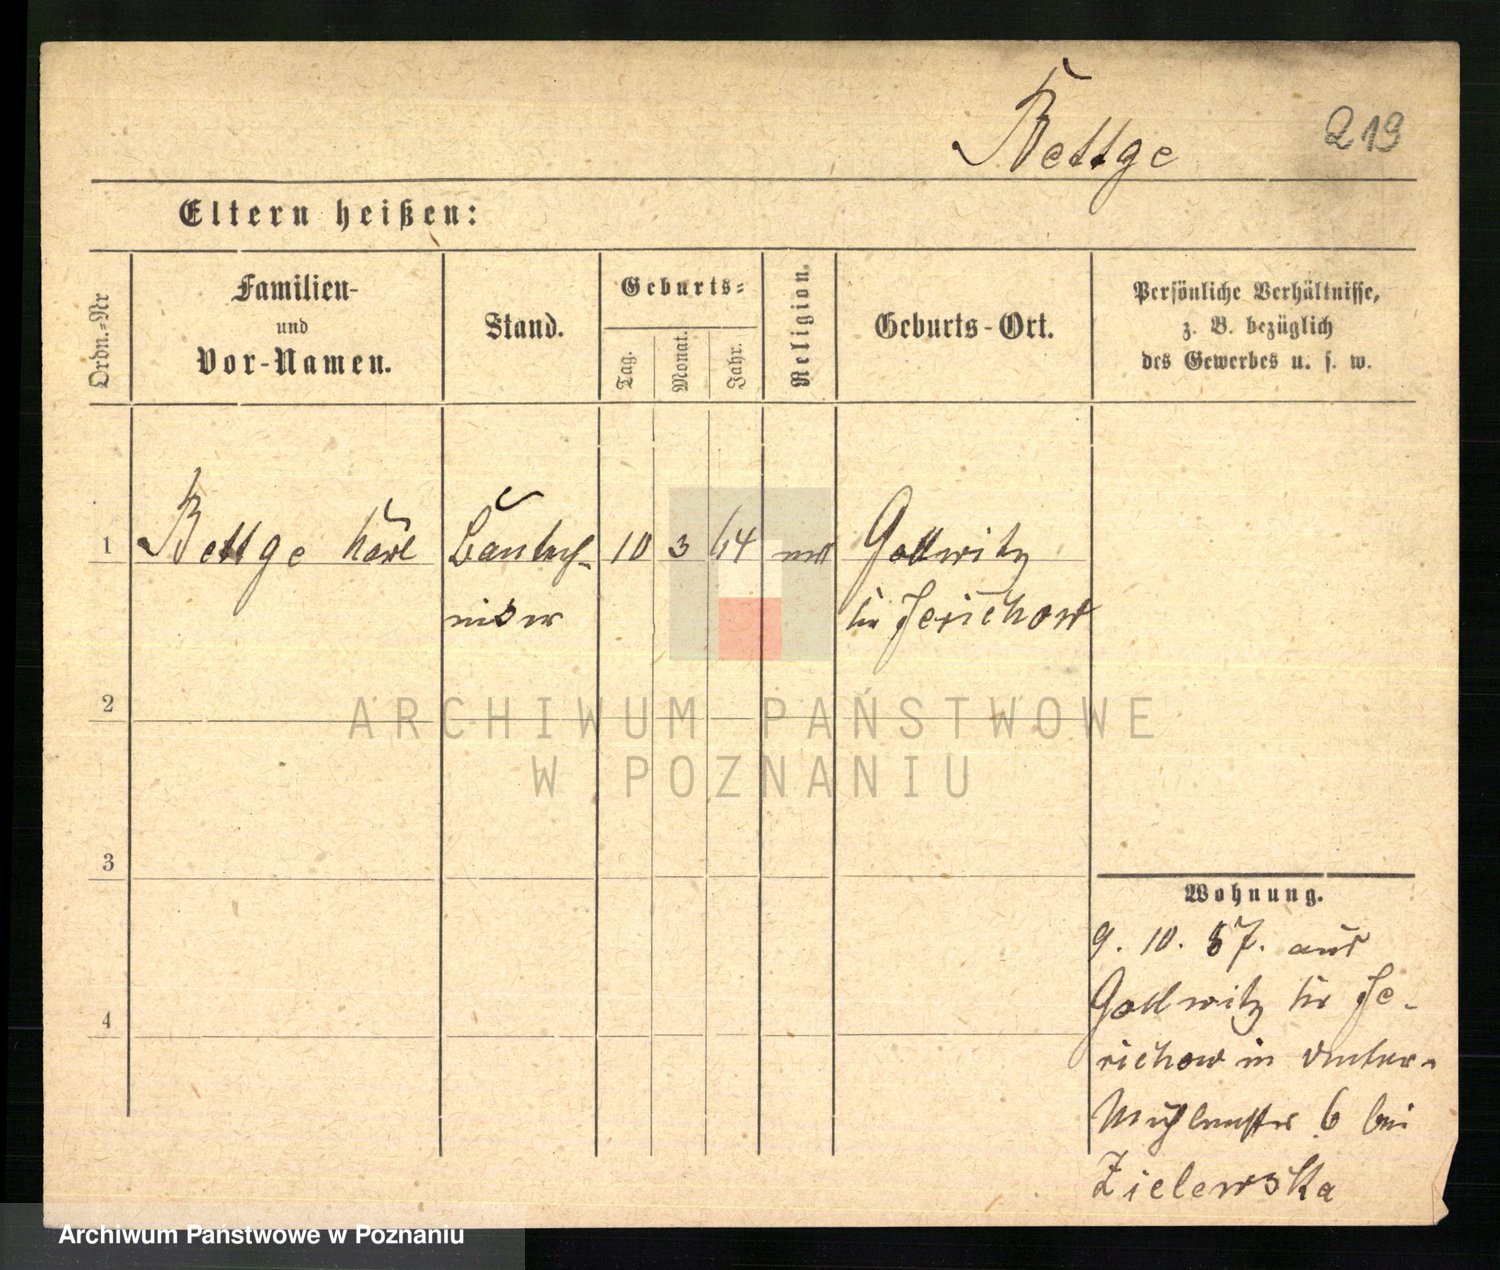 Bettge
219
Eltern heißen:
Ordn.-Nr
Familien-
und
Vor-Namen.
Stand.
Geburts-
Tag.
Monat.
Jahr.
Religion.
Geburts-Ort.
Persönliche Verhältnisse,
z. B. bezüglich
des Gewerbes u. s. w.
1 Bettge Karl Bautech- 10 3 64 Gollwitz
niker Kr Jerichow
2
3
4
Wohnung.
9. 10. 87. aus
Gollwitz Kr Je-
richow in Unter-
Mühlenstr 6 bei
Zielewska
ARCHIWUM PAŃSTWOWE
W POZNANIU
Archiwum Państwowe w Poznaniu